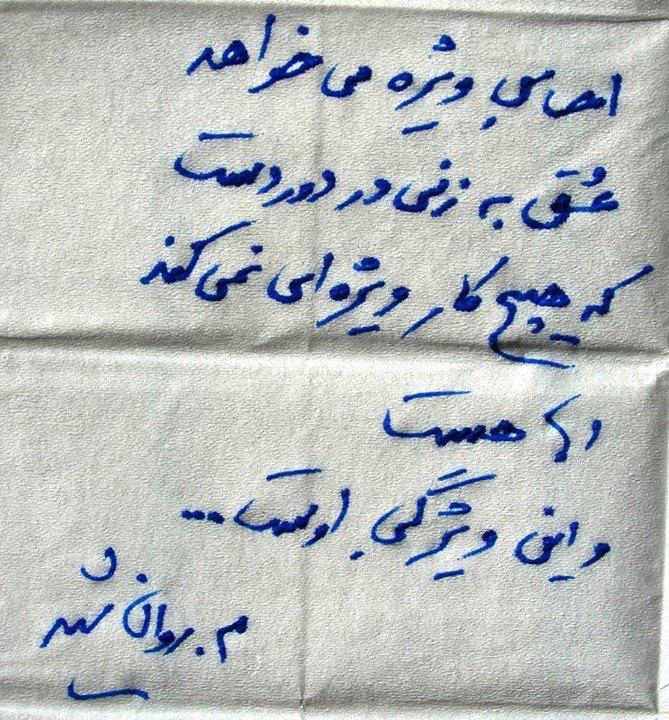 احساس ویژه می خواهد
عشق به زنی در دوردست
که هیچ کار ویژه ای نمی کند
اما هست
و این ویژگی اوست...
م. روان شید